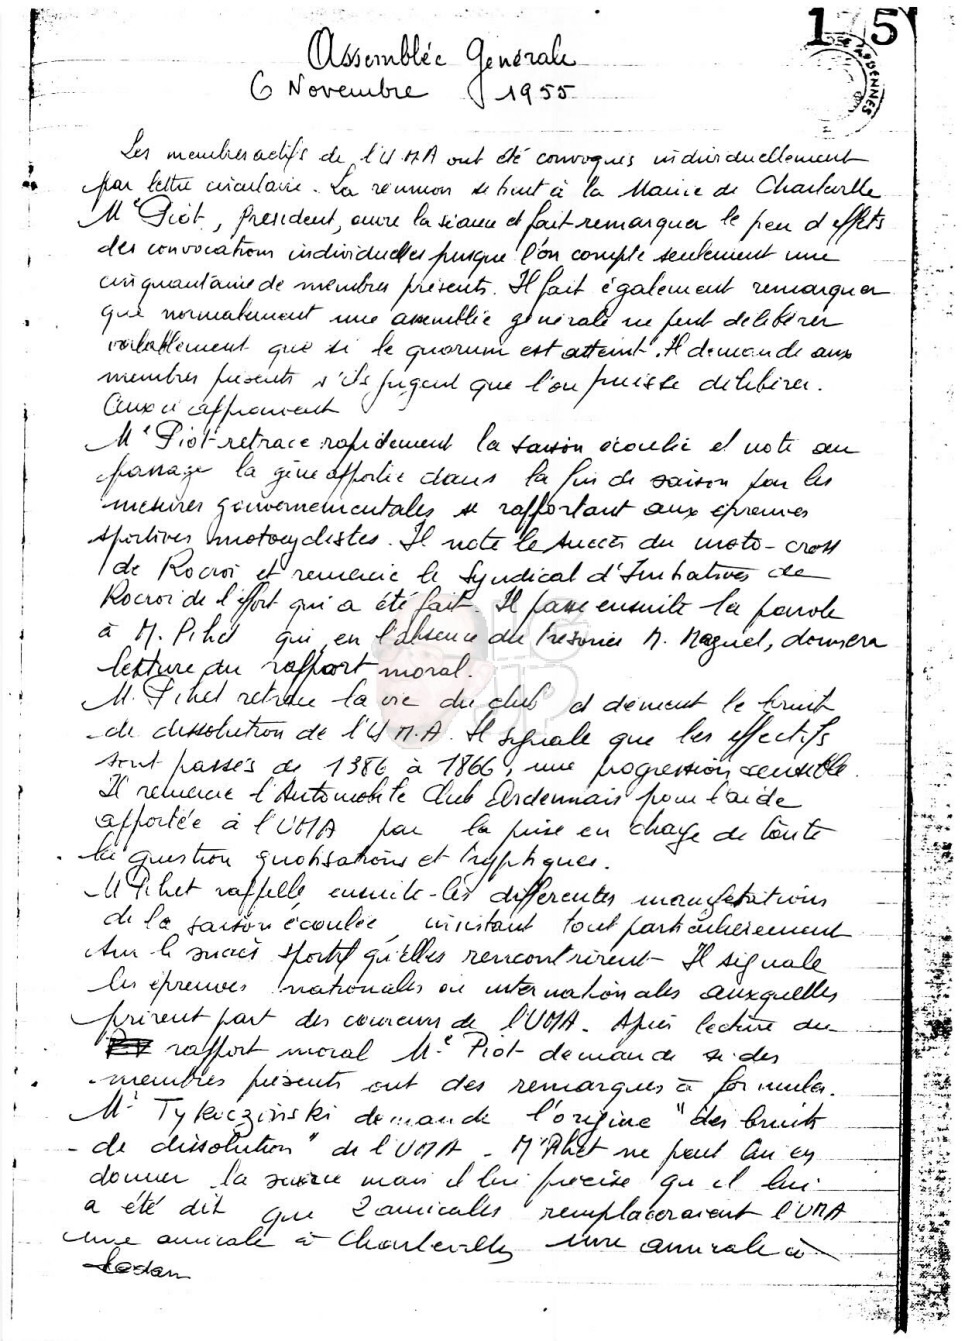 175
DES ARDENNES
Assemblée Générale
6 Novembre 1955
Les membres actifs de l'UMA ont été convoqués individuellement
par lettre circulaire. La réunion se tient à la Mairie de Charleville
Me Piot, Président, ouvre la séance et fait remarquer le peu d'effets
des convocations individuelles puisque l'on compte seulement une
cinquantaine de membres présents. Il fait également remarquer
que normalement une assemblée générale ne peut délibérer
valablement que si le quorum est atteint. Il demande aux
membres présents s'ils jugent que l'on puisse délibérer.
Ceux ci approuvent
Me Piot retrace rapidement la saison écoulée et note au
passage la gêne apportée dans la fin de saison par les
mesures gouvernementales se rapportant aux épreuves
sportives motocyclistes. Il note le succès du moto-cross
de Rocroi et remercie le Syndicat d'Initiatives de
Rocroi de l'effort qui a été fait. Il passe ensuite la parole
à M. Pihet qui, en l'absence du Trésorier M. Maguet, donnera
lecture du rapport moral.
M. Pihet retrace la vie du club et dément le bruit
de dissolution de l'UMA. Il signale que les effectifs
sont passés de 1386 à 1866, une progression sensible.
Il remercie l'Automobile Club Ardennais pour l'aide
apportée à l'UMA par la prise en charge de toute
la question quotisations et tryptiques.
M Pihet rappelle ensuite les différentes manifestations
de la saison écoulée, insistant tout particulièrement
sur le succès sportif qu'elles rencontrèrent. Il signale
les épreuves nationales ou internationales auxquelles
prirent part des coureurs de l'UMA. Après lecture du
rapport moral Me Piot demande si des
membres présents ont des remarques à formuler.
Mr Tykoczinski demande l'origine "des bruits
de dissolution" de l'UMA. M Pihet ne peut lui en
donner la source mais il lui précise qu'il lui
a été dit que 2 amicales remplaceraient l'UMA
une amicale à Charleville, une amicale à
Sedan